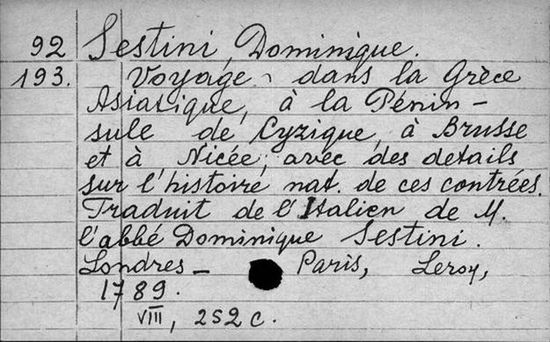 92 Sestini, Dominique.
193. Voyage dans la Grèce
Asiatique, à la Pénin-
sule de Cyzique, à Brusse
et à Nicée, avec des details
sur l'histoire nat. de ces contrées.
Traduit de l'Italien de M.
l'abbé Dominique Sestini.
Londres - Paris, Leroy,
1789.
VIII, 252 c.